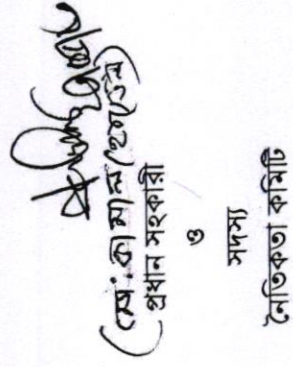 (মো: কামাল হোসেন)
প্রধান সহকারী
ও
সদস্য
নৈতিকতা কমিটি